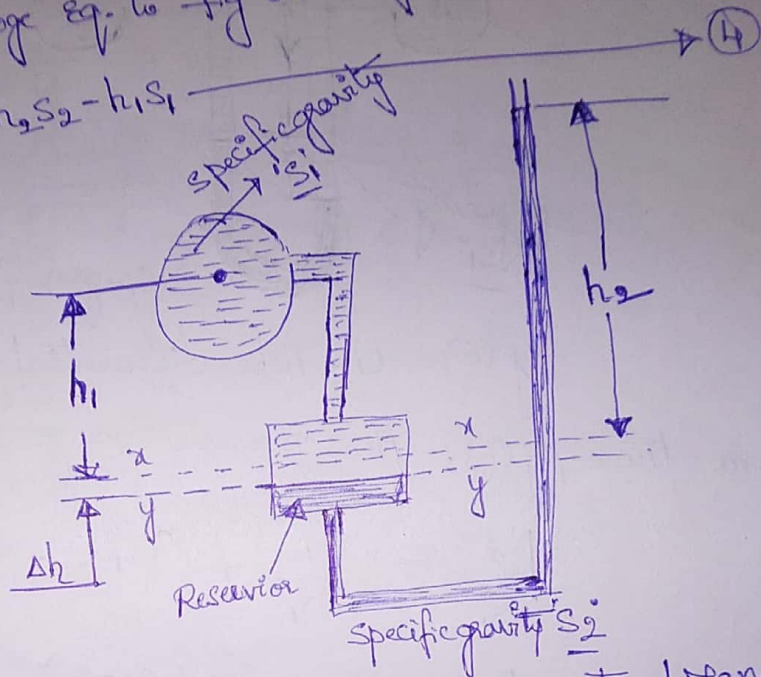 Eq. to
④
h₂S₂ - h₁S₁
specific gravity
'S₁'
h₂
h₁
x
x
y
y
Δh
Reservior
specific gravity 'S₂'